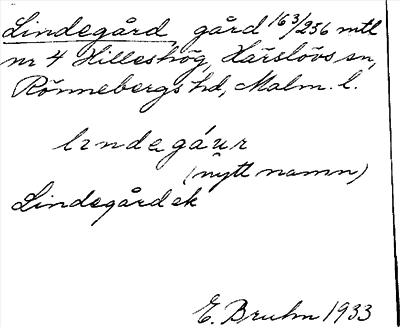 Lindegård, gård 163/256 mtl
nr 4 Hilleshög, Härslövs sn,
Rönnebergs hd, Malm. l.
lındəgáur
(nytt namn)
Lindegård ek
E. Bruhn 1933